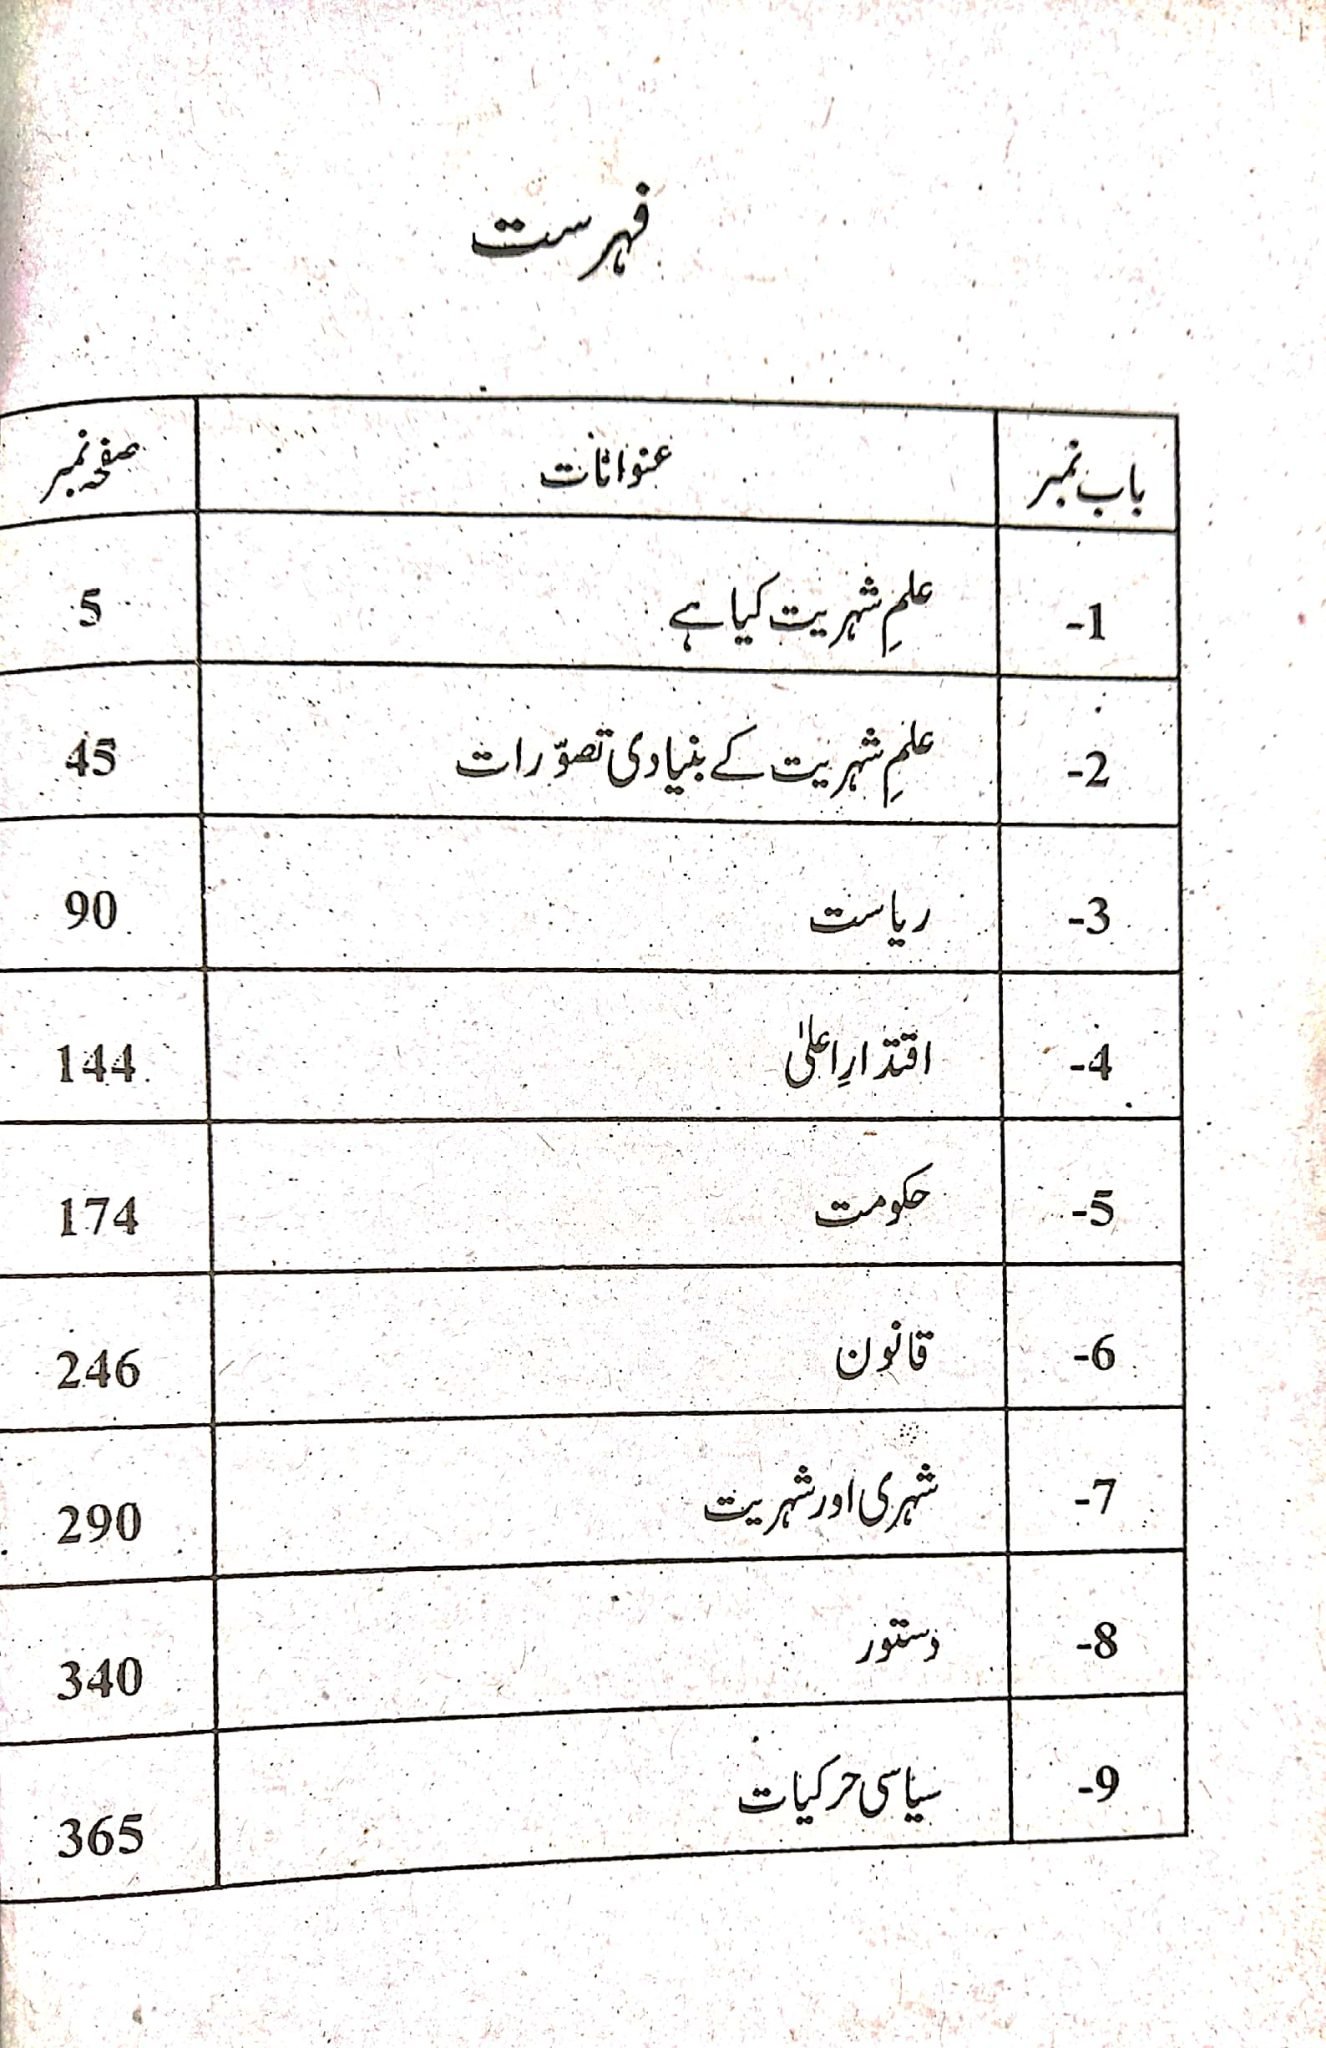 فہرست
باب نمبر عنوانات صفحہ نمبر
1- علمِ شہریت کیا ہے 5
2- علمِ شہریت کے بنیادی تصوّرات 45
3- ریاست 90
4- اقتدارِ اعلیٰ 144
5- حکومت 174
6- قانون 246
7- شہری اور شہریت 290
8- دستور 340
9- سیاسی حرکیات 365